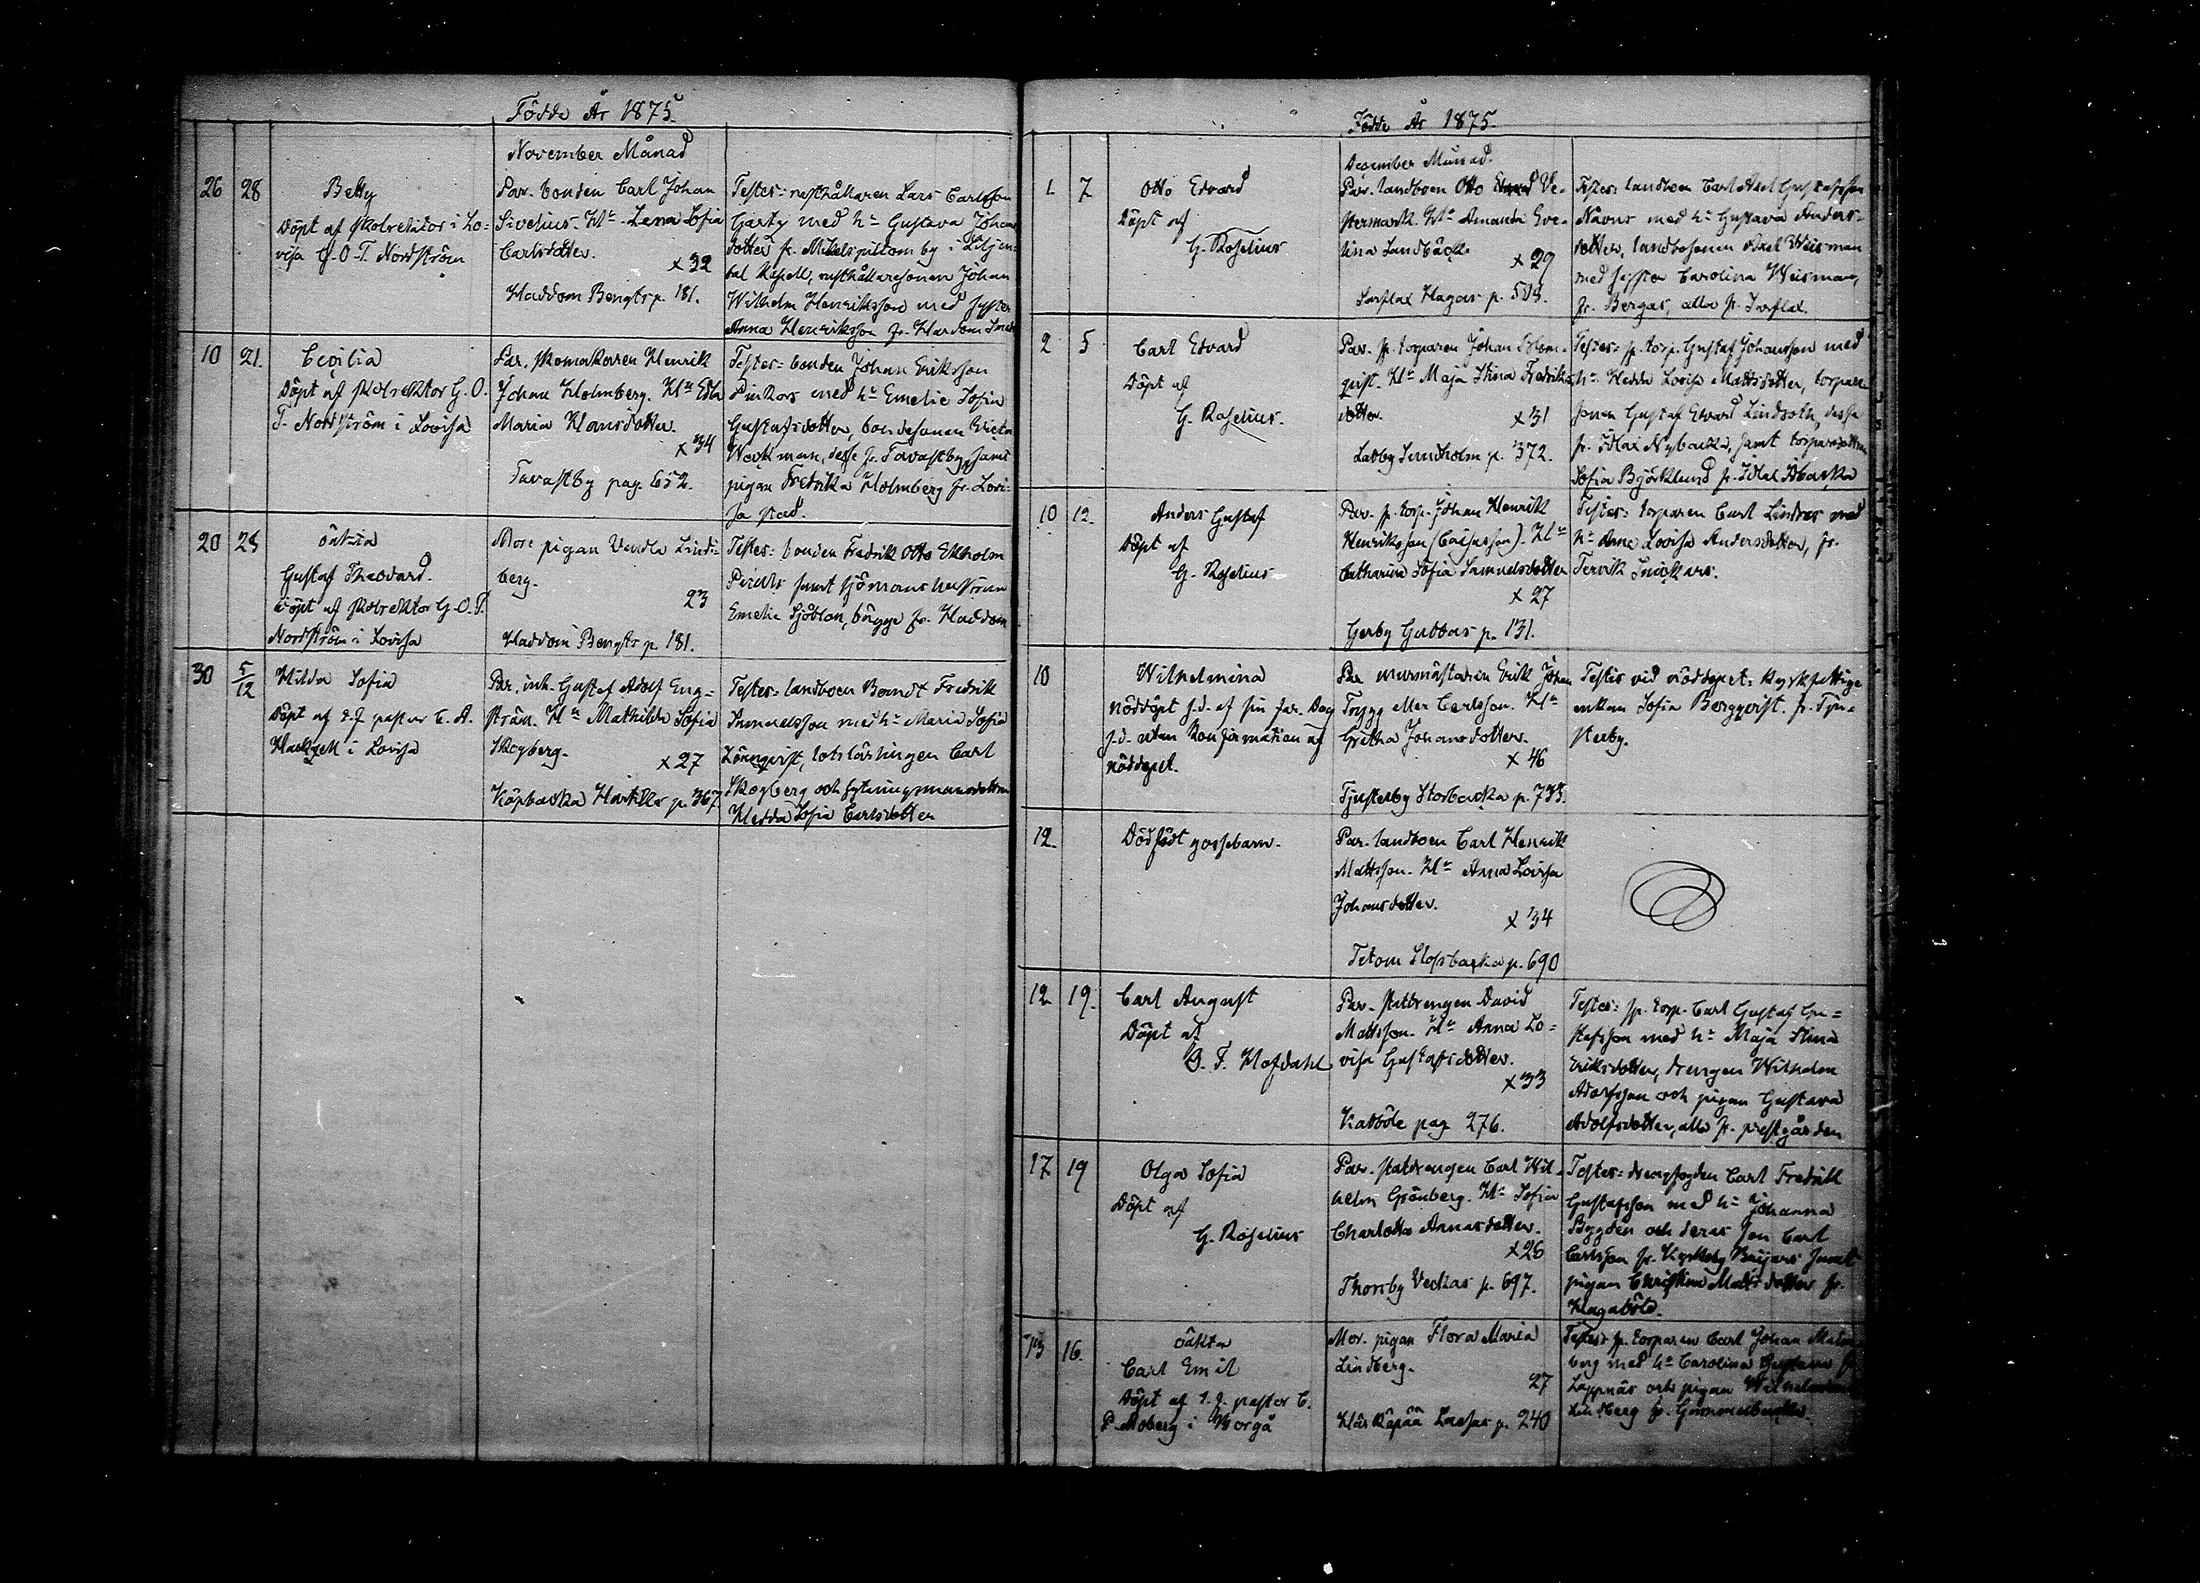 Födde År 1875.
November Månad
26 28
Betty
Döpt af skolrektor i Lo-
visa G. O. T. Nordström
Par. bonden Carl Johan
Sivelius. H:u Lena Sofia
Carlsdotter.
x 32
Haddom Bengts p. 181.
Testes: rusthållaren Lars Carlsson
Gärty med h: Gustava Johans
dotter fr. Mickelspiltom by i Liljen
dal Kapell, rusthållaresonen Johan
Wilhelm Henriksson med syster
Anna Henriksson fr. Hardom
10 21.
Cecilia
Döpt af skolrektor G. O.
T. Nordström i Lovisa
Par. skomakaren Henrik
Johan Holmberg. H:u Edla
Maria Klasdotter.
x 34
Tavastby pag. 652.
Testes: bonden Johan Eriksson
med h: Emelie Sofia
Gustafsdotter, bondesonen Victor
Workman, desse fr. Tavastby, samt
pigan Fredrika Holmberg fr. Lovi-
sa stad.
20 28
oäkta
Gustaf Theodard.
Döpt af skolrektor G. O. T.
Nordström i Lovisa
More pigan Vendla Lind-
berg.
23
Haddom Bengts p. 181.
Testes: bonden Fredrik Otto Ekholm
samt sjömans hustrun
Emelie Sjöblom, bägge fr. Haddom
30 5/12
Hilda Sofia
Döpt af v. pastor C. A.
Hackzell i Lovisa
Par. inh. Gustaf Adolf Eng-
ström. H:u Mathilda Sofia
Skogberg.
x 27
Köpbacka Härkks p. 367.
Testes: landboen Berndt Fredrik
Samuelsson med h: Maria Sofia
Lönnqvist, lotslärlingen Carl
Skogberg och fytningsmansdottren
Hedda Sofia Carlsdotter
Födde År 1875.
December Månad.
1. 7
Otto Edvard
Döpt af
G. Roselius
Par. landboen Otto Ve-
stermark H:u Amanda Eve-
lina Sandbäck.
x 29
Sarflax Hagas p. 503.
Testes: landboen Carl Axel Gustafsson
Navus med h: Gustava Anders-
dotter, landbosonen Axel Weisman
med syster Carolina Weisman,
fr. Bergas, alla fr. Sarflax.
2 5
Carl Edvard
Döpt af
G. Roselius.
Par. sp. torparen Johan Blom-
qvist. H:u Maja Stina Fredriks
dotter.
x 31
Labby Sundholm p. 372.
Testes: sp. torp. Gustaf Johansson med
h: Hedda Lovisa Mattsdotter, torpare
sonen Gustaf Edvard Lindroth, desse
fr. Idlax Nybacka, samt torparedottren
Sofia Björklund fr. Idlax Abacka
10 12.
Anders Gustaf
Döpt af
G. Roselius
Par. sp. torp. Johan Henrik
Henriksson (Cajusson). H:u
Catharina Sofia Samuelsdotter
x 27
Gerby Gubbas p. 131.
Testes: torparen Carl Lindros med
h: Anna Lovisa Andersdotter, fr.
Tervik Snickars.
10
Wilhelmina
nöddöpt s.d. af sin far. Dog
s.d. utan konfirmation af
nöddopet.
Par murmästaren Erik Johan
Trygg eller Carlsson. H:u
Gretha Johansdotter.
x 46
Tjusterby Storbacka p. 733.
Testis vid nöddopet: kyrkfattige
enkan Sofia Bergqvist fr. Tju-
sterby.
12.
Dödfödt gossebarn.
Par. landboen Carl Henrik
Mattsson. H:u Anna Lovisa
Johansdotter.
x 34
Tetom Slossbacka p. 690
12 19.
Carl August
Döpt af
G. F. Hofdahl
Par. statdrengen David
Mattsson. H:u Anna Lo-
visa Gustafsdotter.
x 33
Kabböle pag 276.
Testes: sp. torp. Carl Gustaf Gu-
stafsson med h: Maja Stina
Eriksdotter, drengen Wilhelm
Adolfsson och pigan Gustava
Adolfsdotter, alla fr. prestgården
17 19
Olga Sofia
Döpt af
G. Roselius
Par. statdrengen Carl Wil-
helm Grönberg. H:u Sofia
Charlotta Annasdotter.
x 26
Thorsby Veckas p. 697.
Testes: drengfogden Carl Fredrik
Gustafsson med h: Johanna
Bygden och deras son Carl
Carlsson fr. Kyrkoby Baijars samt
pigan Christina Matts dotter fr.
Hagaböle.
13 16.
oäkta
Carl Emil
Döpt af v. pastor C.
P. Moberg i Borgå
Mor. pigan Flora Maria
Lindberg.
27
Härkäpää Lassas p. 240
Testes: sp. torparen Carl Johan Malm
berg med h: Carolina Gustava fr.
Lappnäs och pigan Wilhelmina
Lindberg fr. Gammelbacka.